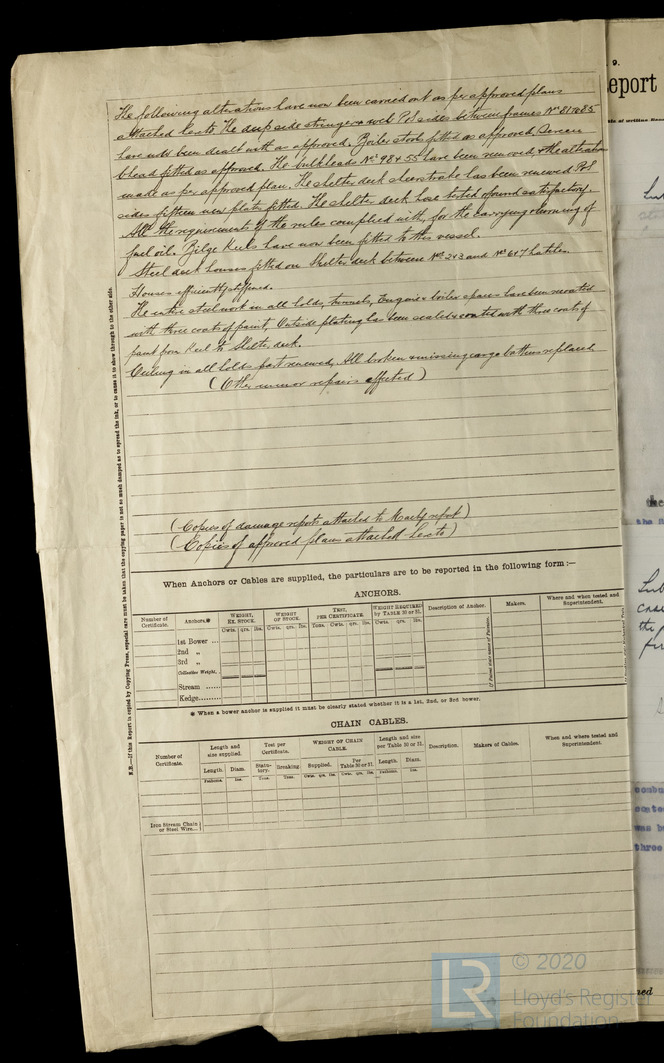 The following alterations have now been carried out as per approved plans
attached hereto. The deep side stringer & web P&S sides between frames Nos 81 to 85
have now been dealt with as approved. Boiler stools fitted as approved. Screen
bhead fitted as approved. The bulkheads Nos 98 & 55 have been removed, & the alterations
made as per approved plan. The shelter deck sheerstrake has been renewed P&S
sides fifteen new plates fitted. The shelter deck hose tested & found satisfactory.
All the requirements of the rules complied with, for the carrying & burning of
fuel oil. Bilge Keels have now been fitted to this vessel.
Steel deck houses fitted on Shelter deck between Nos 2&3 and Nos 6&7 hatches.
Houses efficiently stiffened.
The entire steelwork in all holds, tunnels, Engine & boiler spaces have been recoated
with three coats of paint, Outside plating has been scaled & coated with three coats of
paint from Keel to Shelter deck.
Ceiling in all holds part renewed, All broken & missing cargo battens replaced
(Other minor repairs effected)
(Copies of damage reports attached to Mach'y report)
(Copies of approved plans attached hereto)
When Anchors or Cables are supplied, the particulars are to be reported in the following form :—
ANCHORS.
Number of Certificate. Anchors.* WEIGHT, EX. STOCK. WEIGHT OF STOCK. TEST, PER CERTIFICATE. WEIGHT REQUIRED by TABLE 30 or 31. Description of Anchor. Makers. Where and when tested and Superintendent.
Cwts. qrs. lbs. Cwts. qrs. lbs. Tons. Cwts. qrs. lbs. Cwts. qrs. lbs.
1st Bower ...
2nd „
3rd „
Collective Weight.
Stream ......
Kedge.........
* When a bower anchor is supplied it must be clearly stated whether it is a 1st, 2nd, or 3rd bower.
CHAIN CABLES.
Number of Certificate. Length and size supplied. Test per Certificate. WEIGHT OF CHAIN CABLE. Length and size per Table 30 or 31. Description. Makers of Cables. When and where tested and Superintendent.
Length. Diam. Statutory. Breaking. Supplied. Per Table 30 or 31. Length. Diam.
Fathoms. Ins. Tons. Tons. Cwts. qrs. lbs. Cwts. qrs. lbs. Fathoms. Ins.
Iron Stream Chain or Steel Wire...
N.B.—If this Report is copied by Copying Press, especial care must be taken that the copying paper is not so much damped as to spread the ink, or to cause it to show through to the other side.
9.
eport
the
was b
three
LR
© 2020
Lloyd's Register
Foundation